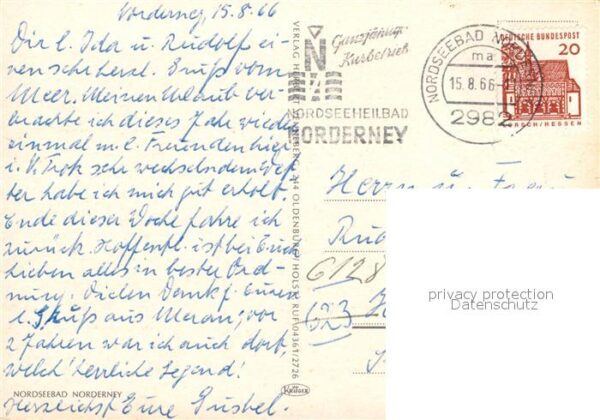 Norderney, 15.8.66
Dir l. Ida u. Rudolf ei-
nen sehr herzl. Gruß vom
Meer. Meinen Urlaub ver-
brachte ich dieses Jahr wieder
einmal m. l. Freunden hier
i. N. Trotz sehr wechselndem Wet-
ter habe ich mich gut erholt.
Ende dieser Woche fahre ich
zurück. Hoffentl. ist bei Euch
Lieben alles in bester Ord-
nung. Vielen Dank f. Euren
l. Gruß aus Meran; vor
2 Jahren war ich auch dort,
welch' herrliche Gegend!
Herzlichst Eure Gustel.
NORDSEEBAD NORDERNEY
VERLAG
OLDENBURG/HOLST RUF 04361/2726
Krüger
Ganzjährig
Kurbetrieb
NORDSEEHEILBAD
NORDERNEY
NORDSEEBAD
ma
15.8.66
2982
DEUTSCHE BUNDESPOST
20
LORSCH/HESSEN
Herrn u. Frau
6128
623
privacy protection
Datenschutz